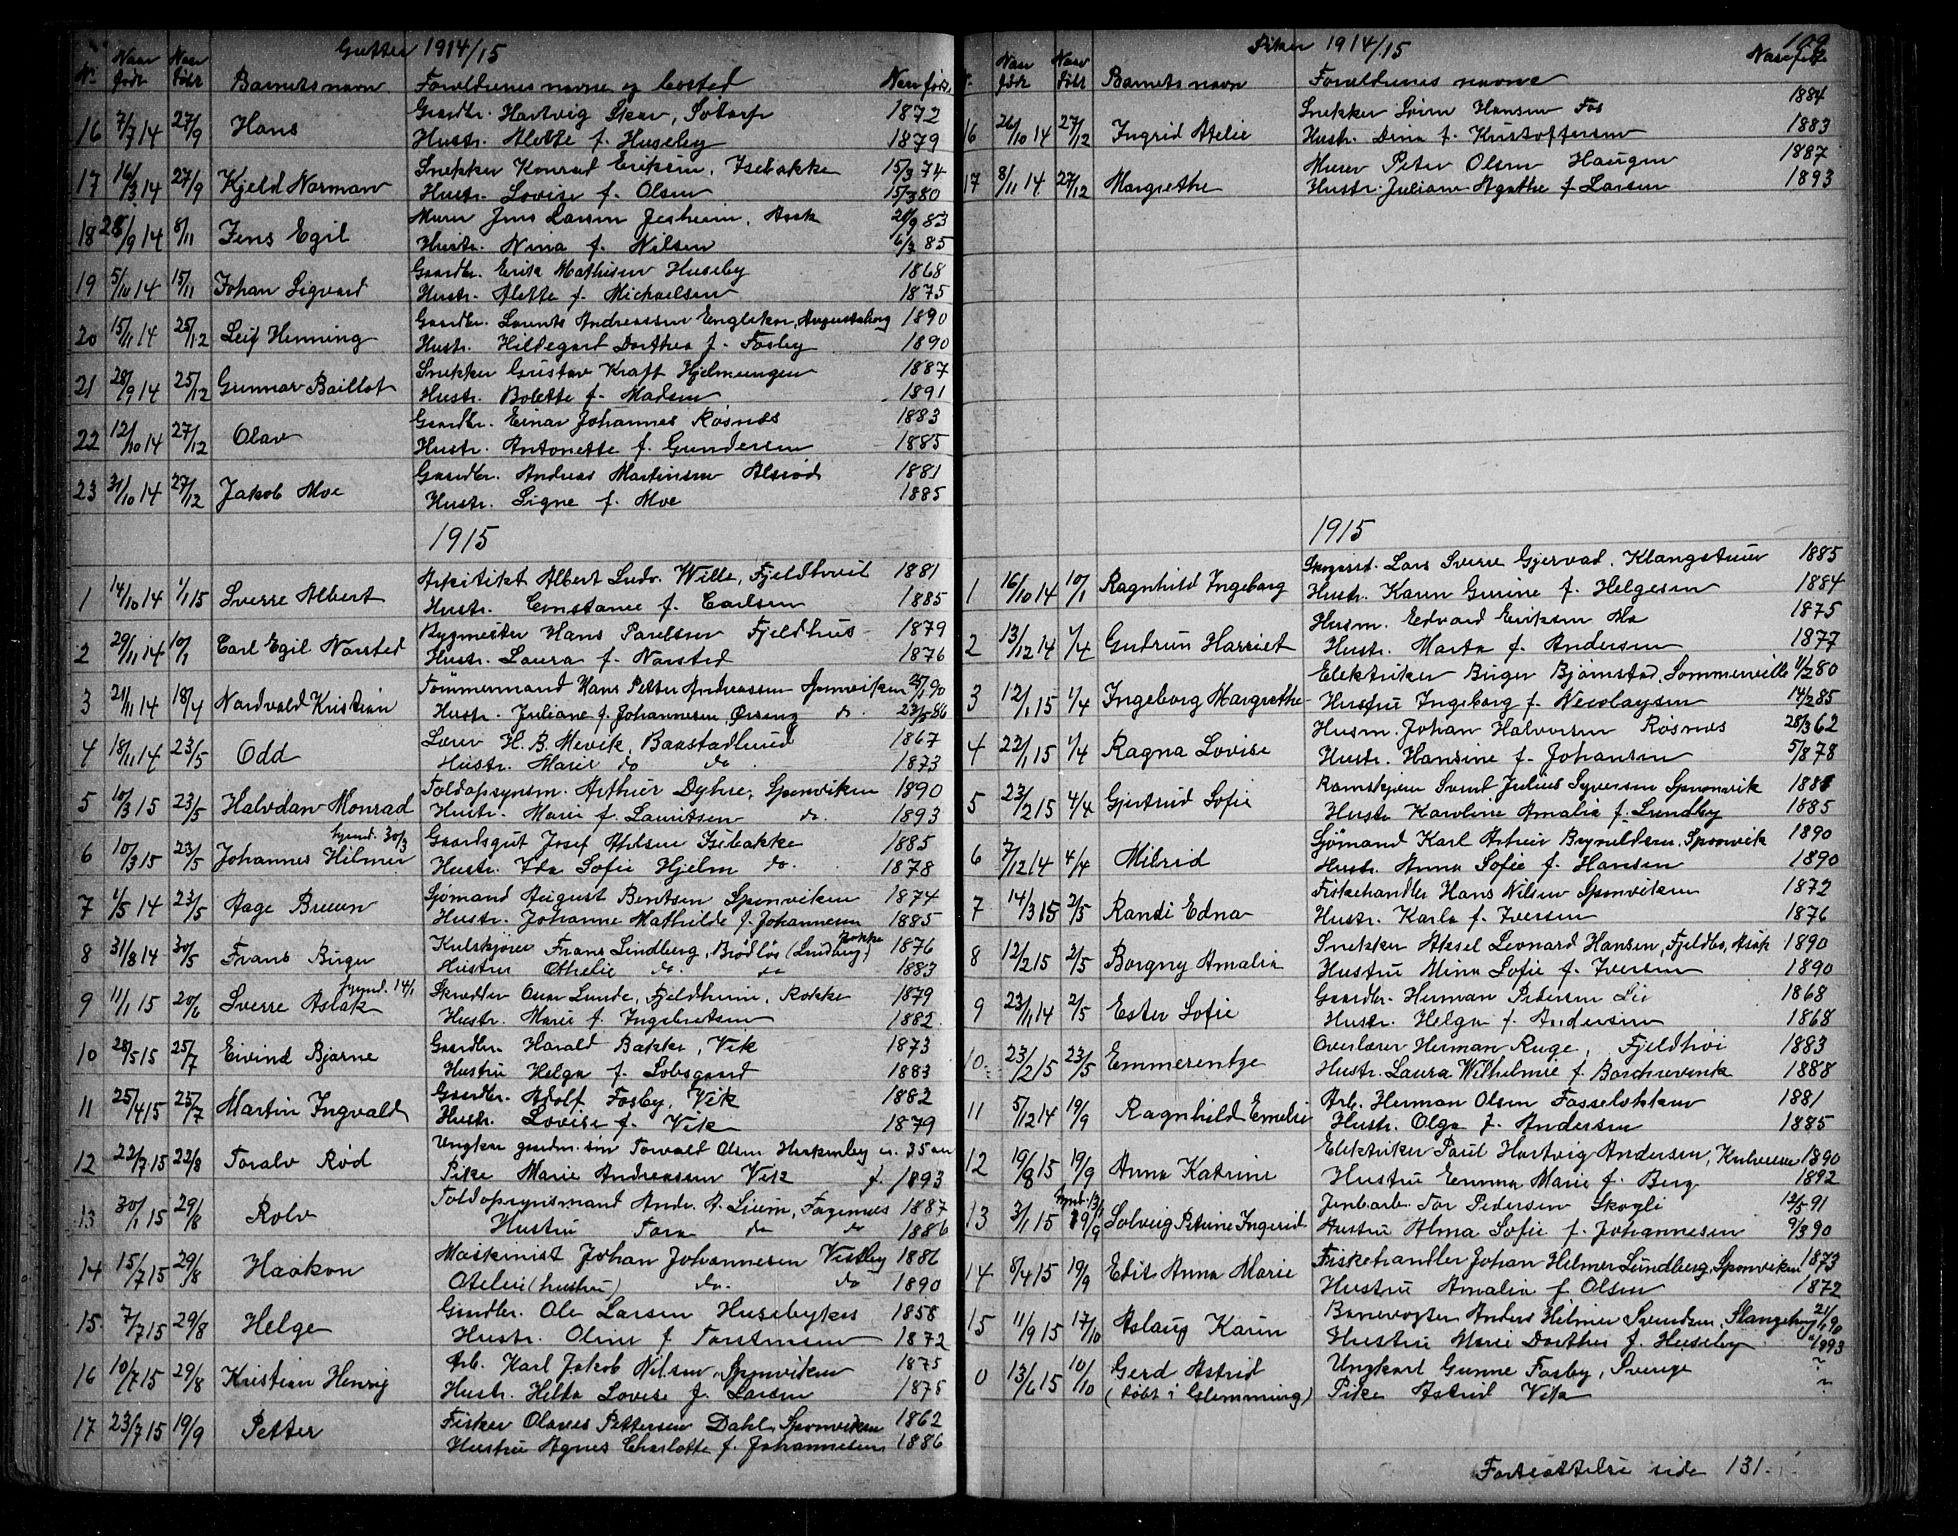 Gutter 1914/15
No Naar født Naar døbt Barnets navn Forældrenes navne og bosted Naar født
16 7/7 14 27/9 Hans Gaardbr. Hartvig Skar, Sotorp 1872
Hustr. Alette f. Huseby 1879
17 16/3 14 27/9 Kjeld Norman Snekker Konrad Eriksen, Isebakke 15/3 74
Hustr. Lovise f. Olsen 15/3 80
18 28/9 14 8/11 Jens Egil Murer Jens Larsen Jesheim, Asak 20/9 83
Hustr. Nina f. Nilsen 6/7 85
19 5/10 14 15/11 Johan Sigvard Gaardbr. Erik Mathisen Huseby 1868
Hustr. Alette f. Michaelsen 1875
20 15/11 14 25/12 Leif Henning Gaardbr. Laurits Andreassen Englekor, Augustaborg 1890
Hustr. Hildegard Dorthea f. Fosby 1890
21 28/9 14 25/12 Gunnar Baillot Snekker Gustav Kraft Hjelmungen 1887
Hustr. Bolette f. Madsen 1891
22 12/10 14 27/12 Olav Gaardbr. Einar Johannes Røsnes 1883
Hustr. Antonette f. Gundersen 1885
23 31/10 14 27/12 Jakob Moe Gaardbr. Andreas Martinsen Alsrød 1881
Hustr. Signe f. Moe 1885
1915
1 14/10 14 1/1 15 Sverre Albert Arkitekt Albert Ludv. Wille, Fjeldhvil 1881
Hustr. Constance f. Carlsen 1885
2 29/11 14 10/1 Carl Egil Narsted Bygmester Hans Paulsen Fjeldhus 1879
Hustr. Laura f. Narsted 1876
3 21/11 14 18/4 Nordvald Kristian Tømmermand Hans Petter Andreassen Sponviken 25/1 90
Hustr. Juliane f. Johannesen Ørseng do. 23/5 86
4 18/11 14 23/5 Odd Lærer H. B. Mevik, Baastadlund 1867
Hustr. Marie do do 1873
5 10/3 15 23/5 Halvdan Monrad Toldopsynsm. Arthur Dyhre, Sponviken 1890
Hustr. Marie f. Lauritsen do. 1893
6 10/3 15 23/5 Johannes Hilmer hjemd. 30/3 Gaardsgut Josef Nilsen Isebakke 1885
Hustr. Ida Sofie Hjelm do. 1878
7 4/5 14 23/5 Aage Bruun Sjømand August Bentsen Sponviken 1874
Hustr. Johanne Mathilde f. Johannesen 1885
8 31/8 14 30/5 Frans Birger Kulskjører Frans Lindberg, Brødløs (Lindberg) Rokke 1876
Hustru Othelie do. do 1883
9 11/1 15 20/6 Sverre Aslak hjemd. 14/1 Skrædder Oscar Lunde, Fjeldheim, Rokke 1879
Hustr. Marie f. Ingebretsen 1882
10 28/5 15 25/7 Eivind Bjarne Gaardbr. Harald Bakke, Vik 1873
Hustru Helga f. Solsgaard 1883
11 25/4 15 25/7 Martin Ingvald Gaardbr. Adolf Fosby, Vik 1882
Hustr. Lovise f. Vik 1879
12 22/7 15 22/8 Toralv Rød Ungkar gaardm. søn Torvald Olsen Herkenby ca. 35 aar
Pike Marie Andreassen Vik f. 1893
13 30/1 15 29/8 Rolv Toldopsynsmand Andr. A. Lium, Fagernes 1887
Hustru Tora do do 1886
14 15/7 15 29/8 Haakon Maskinist Johan Johannesen Vestby 1886
Otelie (hustru) do. do 1890
15 7/7 15 29/8 Helge Gardbr. Ole Larsen Husebykas 1858
Hustr. Oline f. Torstensen 1872
16 10/7 15 29/8 Kristian Henrig Arb. Karl Jakob Nilsen, Sponviken 1875
Hustr. Hilda Lovise f. Larsen 1875
17 23/7 15 19/9 Petter Fisker Olaves Pettersen Dahl, Sponviken 1862
Hustru Agnes Charlotte f. Johannesen 1886
Piker 1914/15 109
Naar født Naar døbt Barnets navn Forældrenes navne Naar født
16 26/10 14 27/12 Ingrid Atelie Snekker Sørn Hansen Fos 1884
Hustr. Dina f. Kristoffersen 1883
17 8/11 14 27/12 Margrethe Murer Peter Olsen Haugen 1887
Hustr. Juliane Agathe f. Larsen 1893
1915
1 16/10 14 10/1 Ragnhild Ingeborg Skogarb. Lars Sverre Gjervad, Klangstuen 1885
Hustr. Karen Gurine f. Helgesen 1884
2 13/12 14 1/4 Gudrun Harriet Husm. Edvard Eriksen Mo 1875
Hustr. Marta f. Andersen 1877
3 12/1 15 1/4 Ingeborg Margrethe Elektriker Birger Bjørnstad, Sommerville 1/2 80
Hustru Ingeborg f. Nicolaysen 14/2 85
4 22/1 15 1/4 Ragna Lovise Husm. Johan Halvorsen Røsnes 28/3 62
Hustr. Hansine f. Johansen 5/8 78
5 23/2 15 4/4 Gjertrud Sofie Kanskjører Svend Julius Syversen Sponvik 1888
Hustr. Karoline Amalia f. Lundby 1885
6 7/12 14 4/4 Milrid Sjømand Karl Artur Brynildsen, Sponvik 1890
Hustr. Anna Sofie f. Hansen 1890
7 14/3 15 2/5 Randi Edna Fiskehandler Hans Nilsen Sponviken 1872
Hustr. Karla f. Iversen 1876
8 12/2 15 2/5 Borgny Amalia Snekker Aksel Leonard Hansen, Fjeldbo, Asak 1890
Hustru Mina Sofie f. Iversen 1890
9 23/11 14 2/5 Ester Sofie Gaardbr. Herman Pedersen Lie 1868
Hustr. Helga f. Andersen 1868
10 23/2 15 23/5 Emmerentze Overlærer Herman Ruge, Fjeldhvi 1883
Hustr. Laura Wilhelmie f. Borchrevink 1888
11 5/12 14 19/9 Ragnhild Emelie Arb. Herman Olsen Fosseløkken 1881
Hustr. Olga f. Andersen 1885
12 19/8 15 19/9 Anna Katrine Elektriker Paul Hartvig Andersen, 1890
Hustru Emma Marie f. Berg 1892
13 3/1 15 19/9 Solveig Petrine Ingerid Jernbarb. Tor Pedersen Skogli 12/5 91
Hustru Alma Sofie f. Johannesen 9/3 90
14 8/4 15 19/9 Edit Anna Marie Fiskehandler Johan Helmer Lundberg, Sponviken 1873
Hustru Amalia f. Olsen 1872
15 11/9 15 17/10 Aslaug Karin Banevogter Anders Hilmer Svendsen, Stangeberg 21/1 90
Hustru Marie Dorthea f. Huseby 1893
0 13/6 15 10/10 Gerd Astrid Ungkarl Gunne Fosby, Sverige ?
(døbt i Glemming) Pike Astrid Vik ?
Fortsættelse side 131.